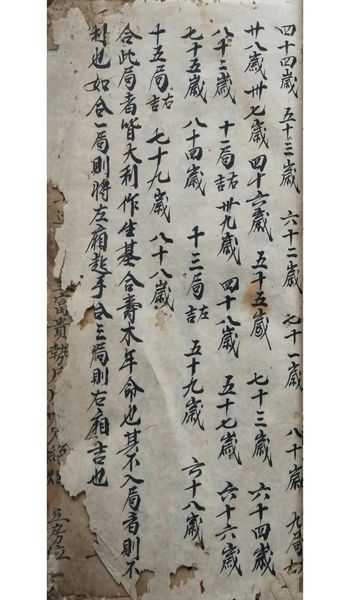 四十四歲 五十三歲 六十二歲 七十一歲 八十歲 九局
廿八歲 卅七歲 四十六歲 五十五歲 七十三歲 六十四歲
八十二歲 十一局右吉 卅九歲 四十八歲 五十七歲 六十六歲
七十五歲 八十四歲 十三局左吉 五十九歲 六十八歲
十五局右吉 七十九歲 八十八歲
合此局者皆大利作生基合壽木年命也其不入局者則不
利也如合一局則將左廂起手合三局則右廂吉也
富貴